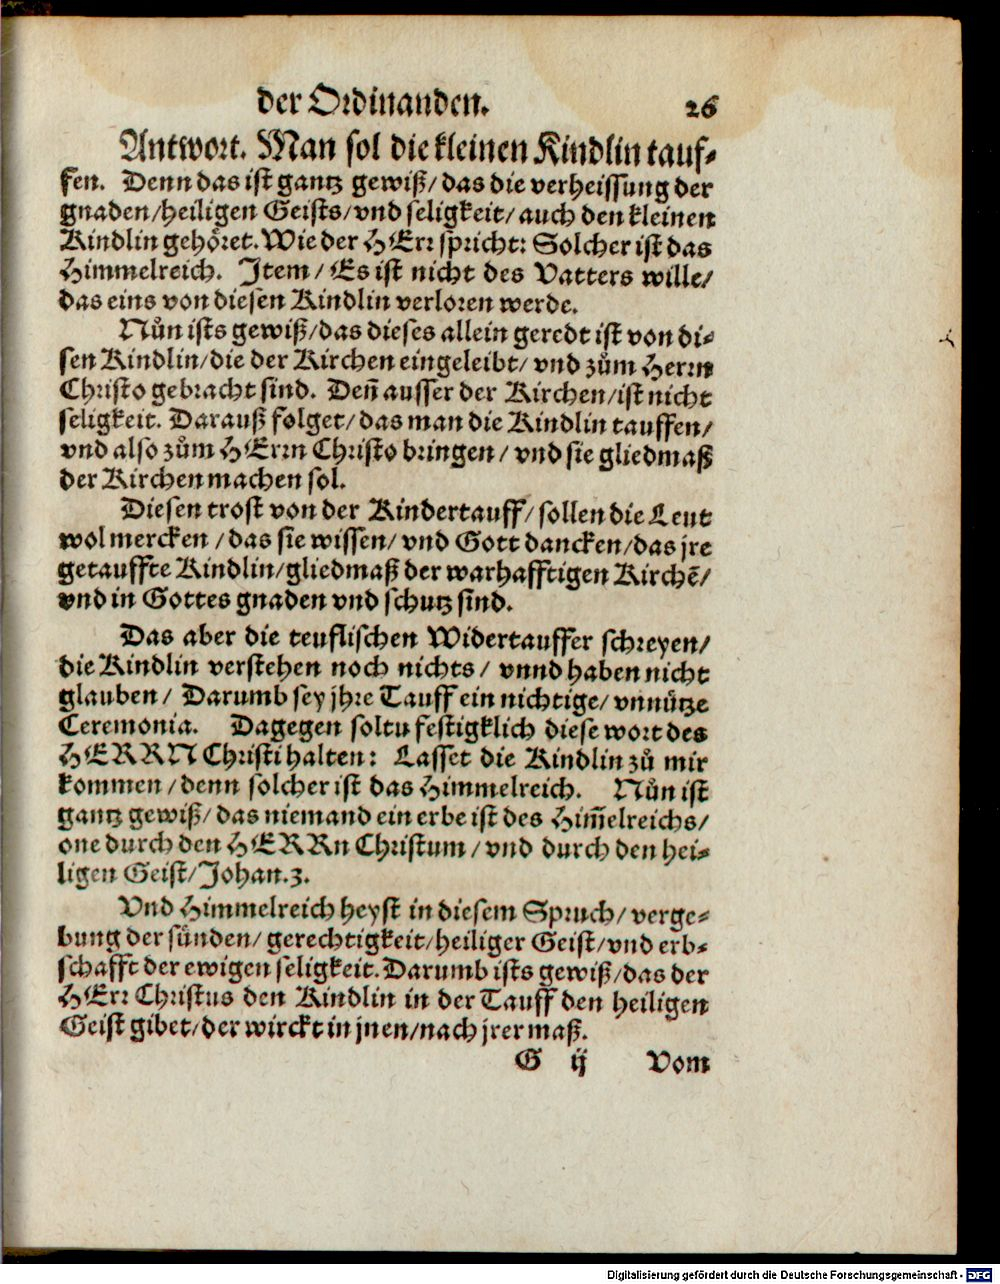 der Ordinanden. 26
Antwort. Man sol die kleinen Kindlin tauf⸗
fen. Denn das ist gantz gewiß/ das die verheissung der
gnaden/heiligen Geists/vnd seligkeit/ auch den kleinen
Kindlin gehoͤret. Wie der HErr spricht: Solcher ist das
Himmelreich. Item/ Es ist nicht des Vatters wille/
das eins von diesen Kindlin verloren werde.
Nůn ists gewiß/das dieses allein geredt ist von di⸗
sen Kindlin/die der Kirchen eingeleibt/ vnd zům Herrn
Christo gebracht sind. Deñ ausser der Kirchen/ist nicht
seligkeit. Darauß folget/ das man die Kindlin tauffen/
vnd also zům HErrn Christo bringen/ vnd sie gliedmaß
der Kirchen machen sol.
Diesen trost von der Kindertauff/ sollen die Leut
wol mercken /das sie wissen/ vnd Gott dancken/das jre
getauffte Kindlin/gliedmaß der warhafftigen Kirchē/
vnd in Gottes gnaden vnd schutz sind.
Das aber die teuflischen Widertauffer schreyen/
die Kindlin verstehen noch nichts/ vnnd haben nicht
glauben/ Darumb sey jhre Tauff ein nichtige/ vnnuͤtze
Ceremonia. Dagegen soltu festigklich diese wort des
HERRN Christi halten: Lasset die Kindlin zů mir
kommen/ denn solcher ist das Himmelreich. Nůn ist
gantz gewiß/ das niemand ein erbe ist des Him̃elreichs/
one durch den HERRn Christum/ vnd durch den hei⸗
ligen Geist/Johan.3.
Vnd Himmelreich heyst in diesem Spruch/ verge⸗
bung der suͤnden/ gerechtigkeit/heiliger Geist/vnd erb⸗
schafft der ewigen seligkeit. Darumb ists gewiß/das der
HErr Christus den Kindlin in der Tauff den heiligen
Geist gibet/der wirckt in jnen/nach jrer maß.
G ij Vom
Digitalisierung gefördert durch die Deutsche Forschungsgemeinschaft - DFG